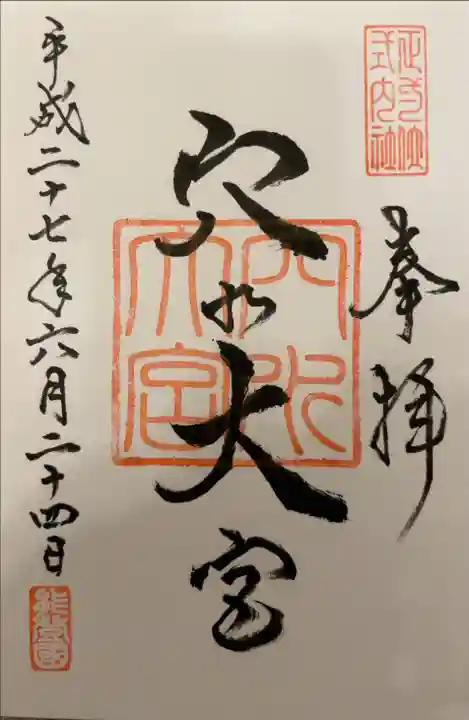 式内社
奉拝
穴水大宮
穴水大宮
平成二十七年六月二十四日
能登国